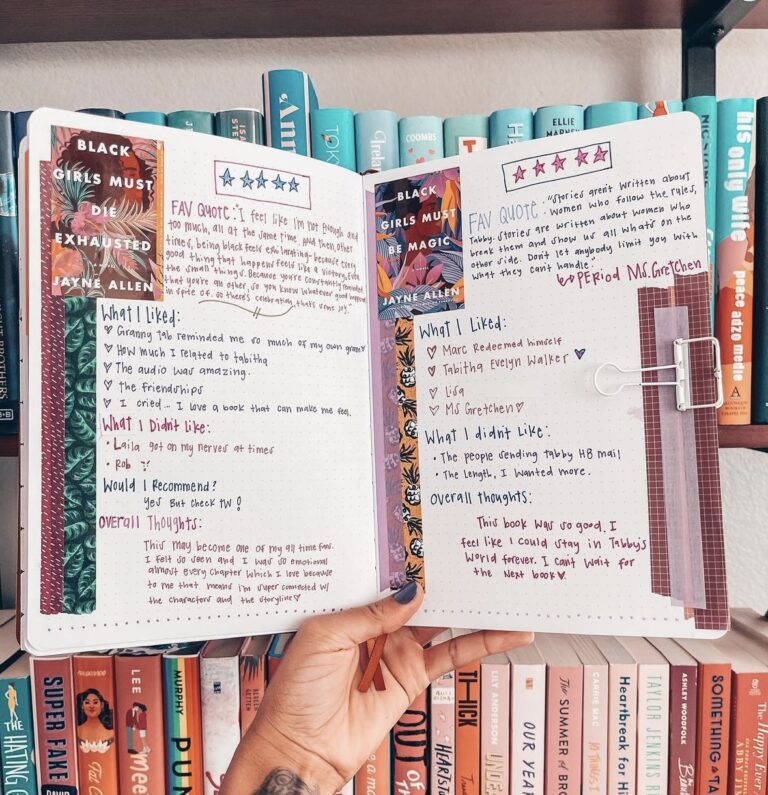 BLACK
GIRLS MUST
DIE
EXHAUSTED
JAYNE ALLEN
FAV QUOTE: "I feel like I'm not enough and
too much, all at the same time. And then other
times, being black feels exhilarating because every
good thing that happens feels like a victory, Even
the small things. Because you're constantly reminded
that you're an other, so you know whatever good happens
in spite of. So there's celebration, that's some joy."
What I Liked:
Granny Tab reminded me so much of my own gram
How much I related to tabitha
The audio was amazing.
the friendships
I cried... I love a book that can make me feel.
What I Didn't Like:
Laila got on my nerves at times
Rob
Would I Recommend?
Yes But check TW!
Overall Thoughts:
This may become one of my all time favs.
I felt so seen and I was so emotional
almost every chapter which I love because
to me that means I'm super connected w/
the characters and the storyline
BLACK
GIRLS MUST
BE MAGIC
JAYNE ALLEN
FAV QUOTE: "Stories aren't written about
women who follow the rules,
Tabby. Stories are written about women who
break them and show us all what's on the
other side. Don't let anybody limit you with
what they can't handle."
PERIOD Ms. Gretchen
What I Liked:
Marc Redeemed himself
Tabitha Evelyn Walker
Lisa
Ms Gretchen
What I didn't Like:
The people sending tabby HB mail
The length, I wanted more.
Overall thoughts:
This book was so good. I
feel like I could stay in Tabby's
World forever. I can't wait for
the next book
COOMBS
ELLIE
NIC STONE
his only wife
peace adzo medie
THE
HATING
SUPER FAKE
DAVID
LEE
MURPHY
OUT OF
THICK
LILY ANDERSON
UNDEAD
OUR YEAR
The SUMMER of
CARRIE MAC
10 THINGS I
Heartbreak for Hi
TAYLOR JENKINS
ASHLEY WOODFOLK
SOMETHING
The Happy Ever
ABBY